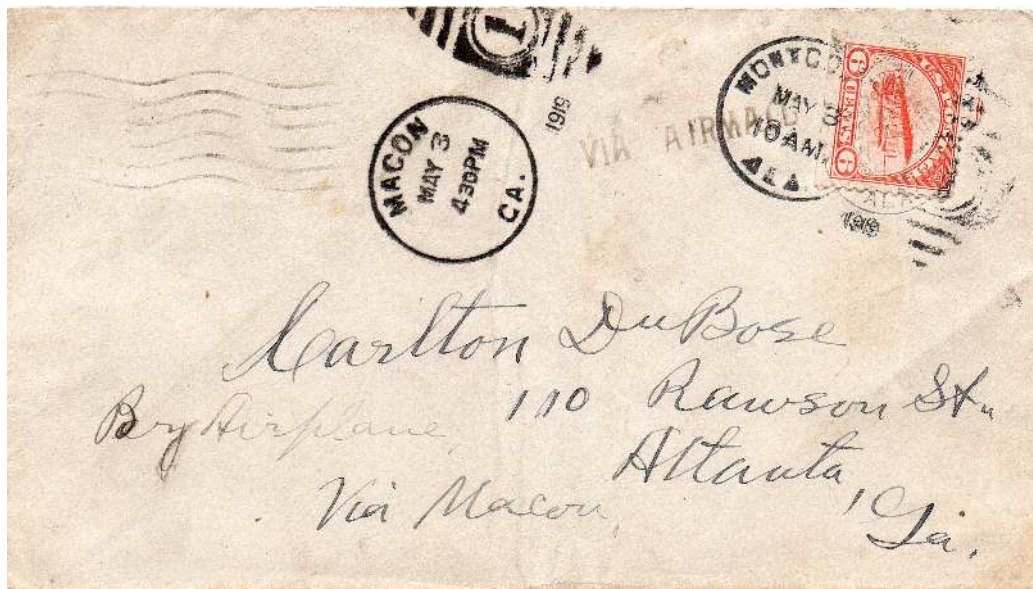 1
1919
MACON
MAY 3
430PM
GA.
VIA AIRMAIL
MONTGO
MAY 3
10 AM
ALA.
1919
6 CENTS 6
Carlton DuBose
110 Rawson St.
Atlanta,
Ga.
By Airplane,
Via Macon,